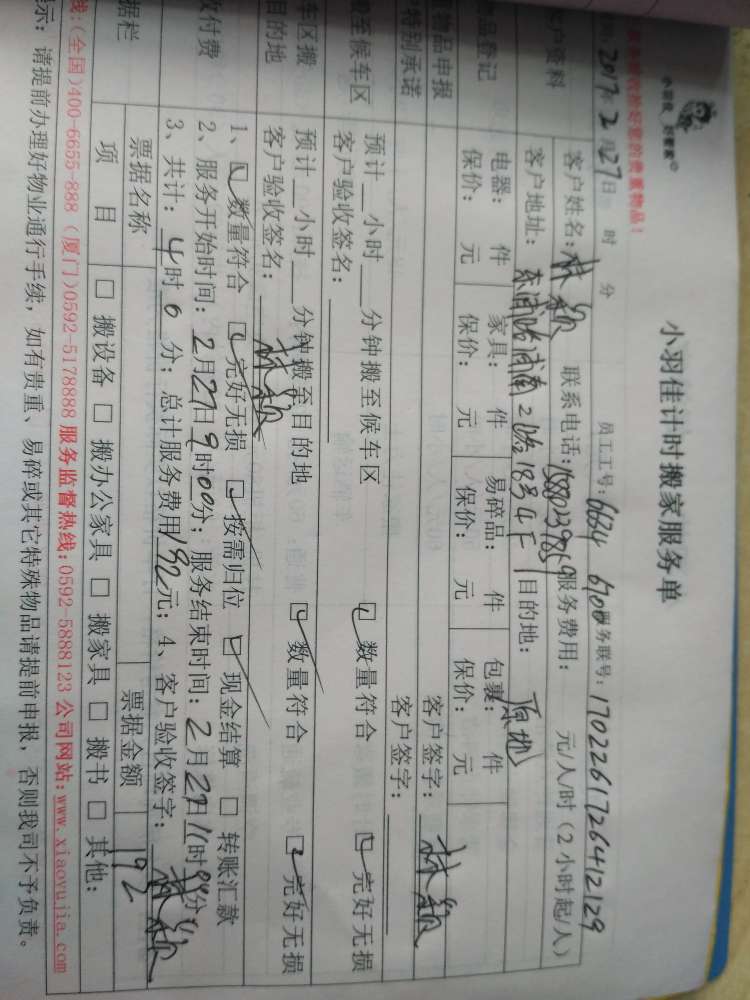 小羽佳 好管家
小羽佳计时搬家服务单
贵重物品!
2017年2月27日 时 分 员工工号:6634 6700 服务联号:170226172641 2129
户资料
客户姓名:林颖 联系电话: 服务费用: 元/人/时(2小时起/人)
客户地址: 2路18号4F 目的地:原地
品登记
电器: 件 家具: 件 易碎品: 件 包裹: 件
保价: 元 保价: 元 保价: 元 保价: 元
物品申报 客户签字:林颖
特别承诺 客户签字:
至候车区
预计 小时 分钟搬至候车区 数量符合 完好无损
客户验收签名:
车区搬
目的地
预计 小时 分钟搬至目的地 数量符合 完好无损
客户验收签名:林颖
付费
1、数量符合 完好无损 按需归位 现金结算 转账汇款
2、服务开始时间:2月27日9时00分;服务结束时间:2月27日11时00分;
3、共计:4时0分;总计服务费用192元;4、客户验收签字:林颖
据栏
票据名称 票据金额 192
项 目 搬设备 搬办公家具 搬家具 搬书 其他:
线:(全国)400-6655-888(厦门)0592-5178888 服务监督热线:0592-5888123 公司网站:www.xiaoyujia.com
示:请提前办理好物业通行手续,如有贵重、易碎或其它特殊物品请提前申报,否则我司不予负责。